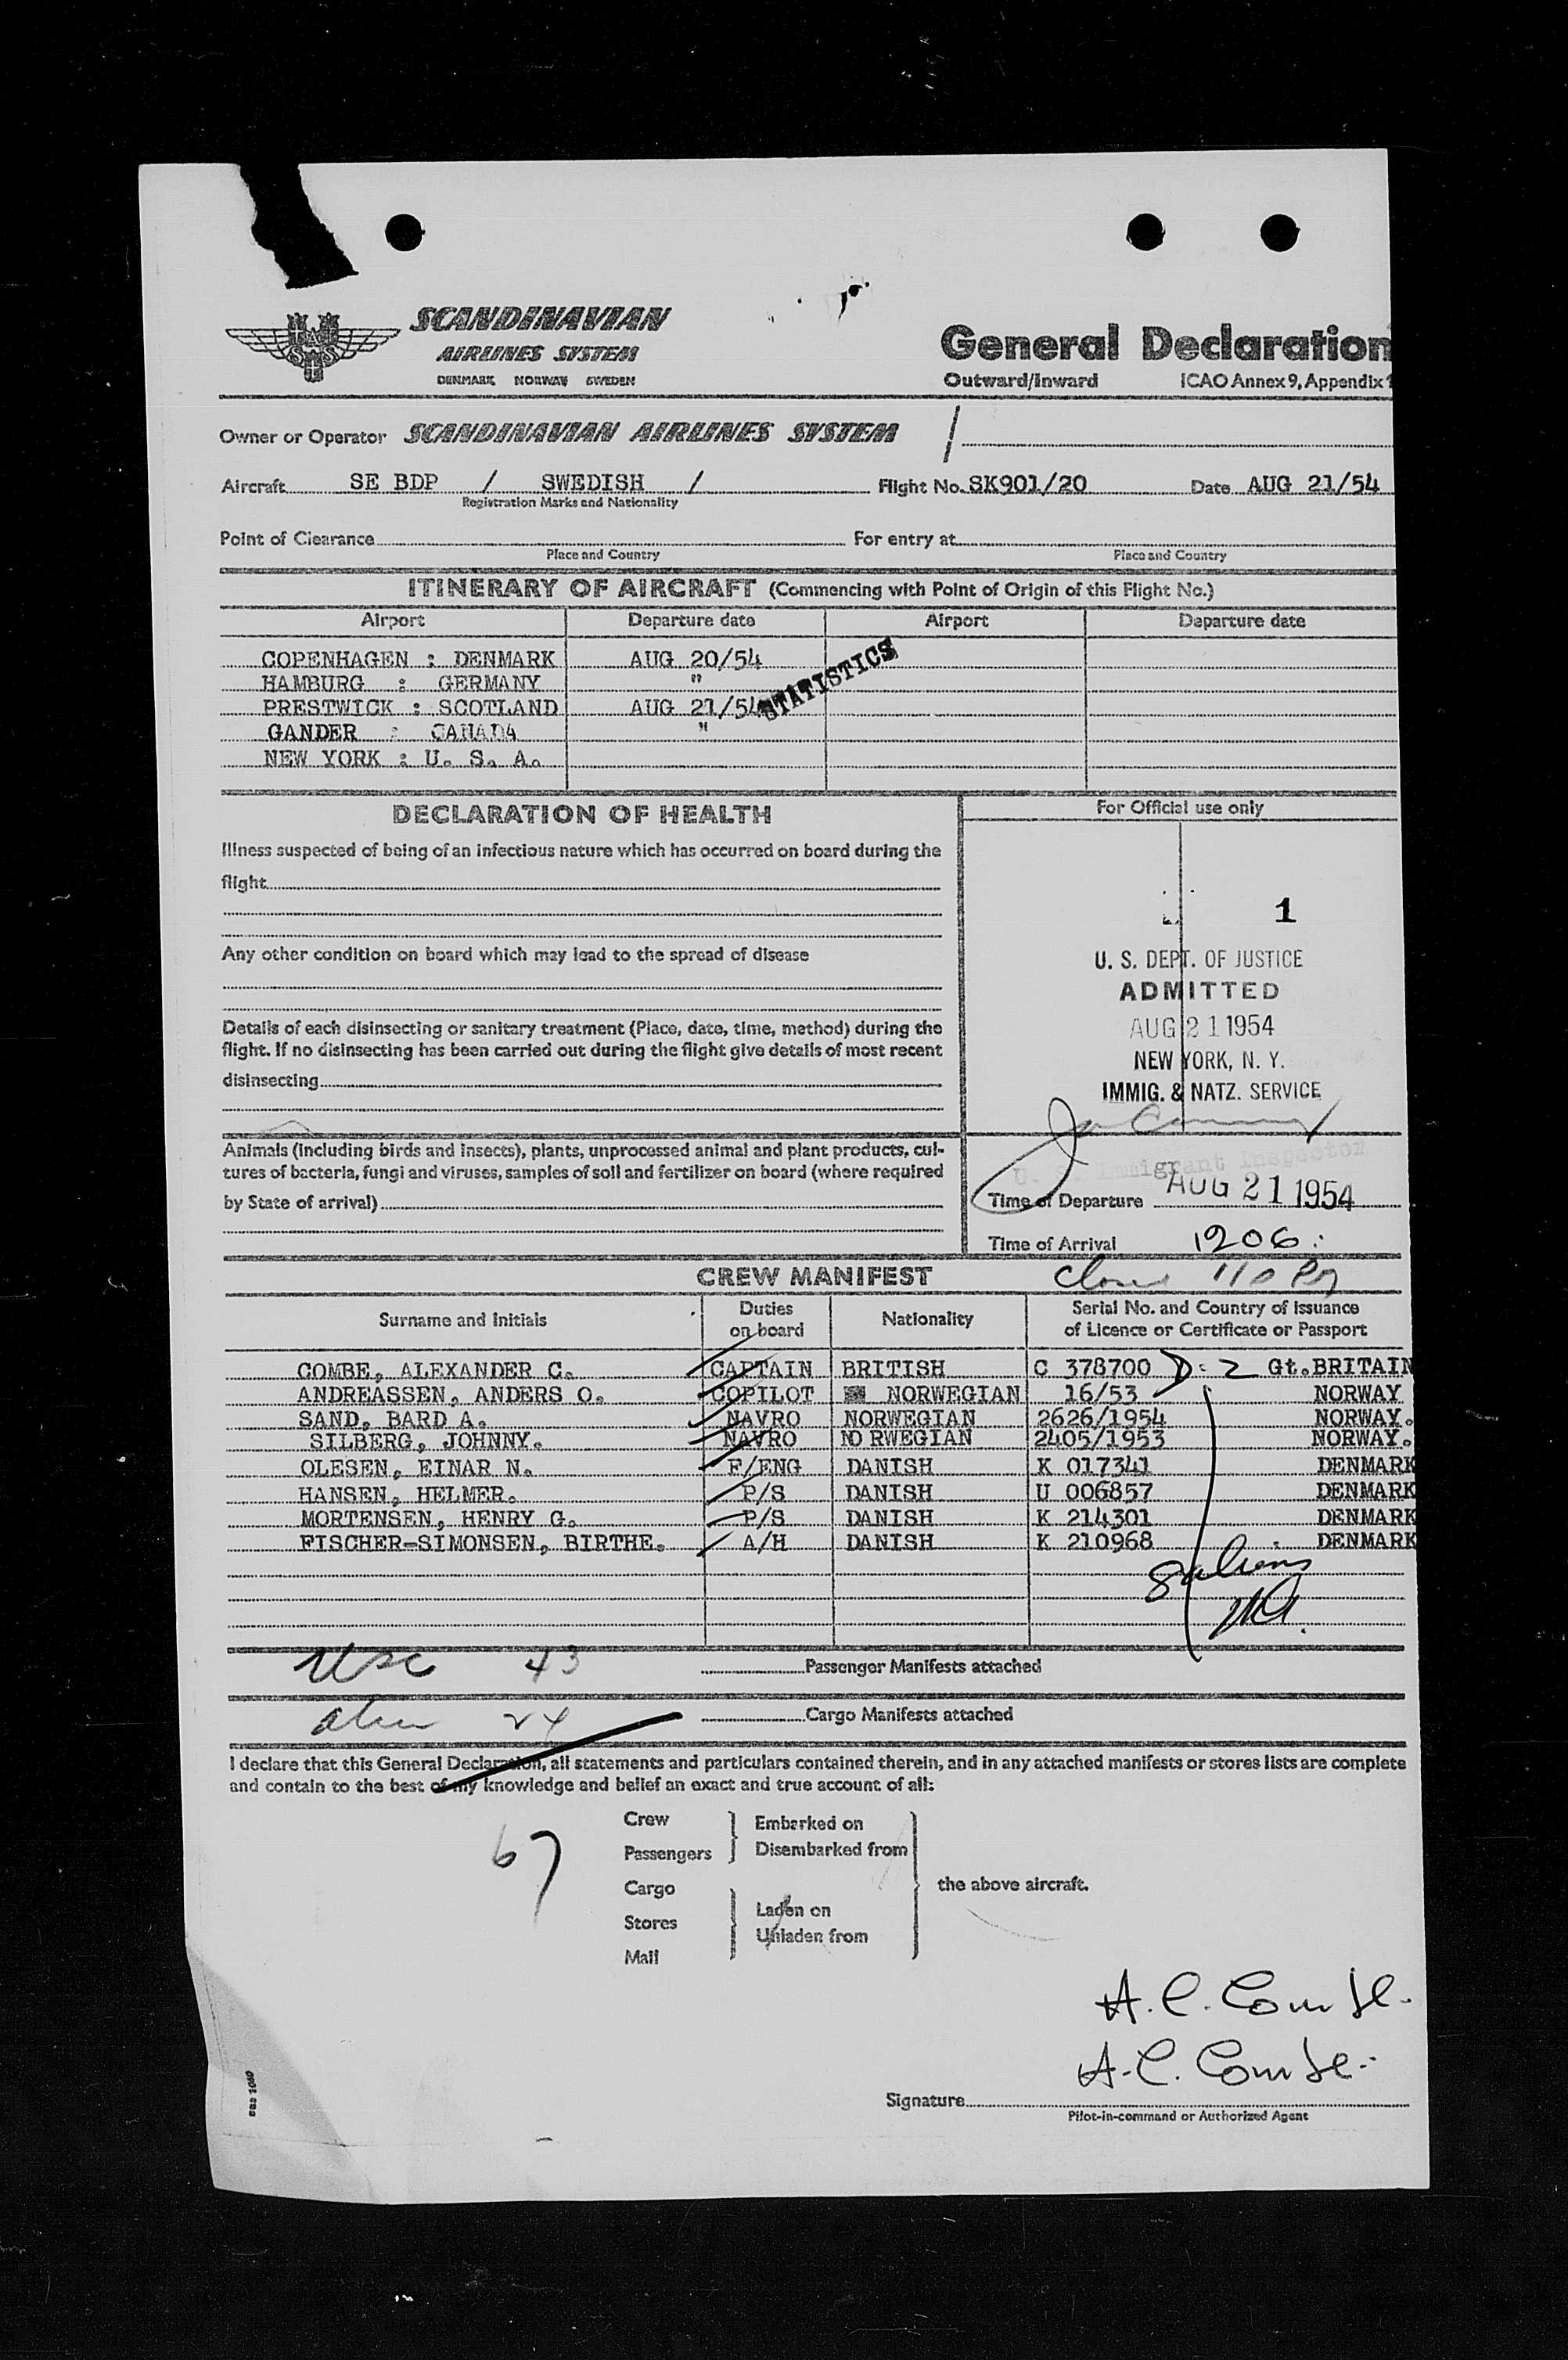 SCANDINAVIAN
AIRLINES SYSTEM
DENMARK NORWAY SWEDEN
General Declaration
Outward/Inward ICAO Annex 9, Appendix 1
Owner or Operator SCANDINAVIAN AIRLINES SYSTEM /
Aircraft SE BDP / SWEDISH / Flight No. SK901/20 Date AUG 21/54
Registration Marks and Nationality
Point of Clearance For entry at
Place and Country Place and Country
ITINERARY OF AIRCRAFT (Commencing with Point of Origin of this Flight No.)
Airport Departure date Airport Departure date
COPENHAGEN : DENMARK AUG 20/54
HAMBURG : GERMANY "
PRESTWICK : SCOTLAND AUG 21/54
STATISTICS
GANDER : CANADA "
NEW YORK : U. S. A.
DECLARATION OF HEALTH
Illness suspected of being of an infectious nature which has occurred on board during the
flight
Any other condition on board which may lead to the spread of disease
Details of each disinsecting or sanitary treatment (Place, date, time, method) during the
flight. If no disinsecting has been carried out during the flight give details of most recent
disinsecting
Animals (including birds and insects), plants, unprocessed animal and plant products, cul-
tures of bacteria, fungi and viruses, samples of soil and fertilizer on board (where required
by State of arrival)
For Official use only
1
U. S. DEPT. OF JUSTICE
ADMITTED
AUG 21 1954
NEW YORK, N. Y.
IMMIG. & NATZ. SERVICE
U. S. Immigrant Inspector
Time of Departure AUG 21 1954
Time of Arrival 1206
CREW MANIFEST
Surname and Initials Duties on board Nationality Serial No. and Country of Issuance
of Licence or Certificate or Passport
COMBE, ALEXANDER C. CAPTAIN BRITISH C 378700 D-2 Gt.BRITAIN
ANDREASSEN, ANDERS O. COPILOT NORWEGIAN 16/53 NORWAY
SAND, BARD A. NAVRO NORWEGIAN 2626/1954 NORWAY.
SILBERG, JOHNNY. NAVRO NORWEGIAN 2405/1953 NORWAY.
OLESEN, EINAR N. F/ENG DANISH K 017341 DENMARK
HANSEN, HELMER. P/S DANISH U 006857 DENMARK
MORTENSEN, HENRY G. P/S DANISH K 214301 DENMARK
FISCHER-SIMONSEN, BIRTHE. A/H DANISH K 210968 DENMARK
8 aliens
USC 43
Passenger Manifests attached
alien 24
Cargo Manifests attached
I declare that this General Declaration, all statements and particulars contained therein, and in any attached manifests or stores lists are complete
and contain to the best of my knowledge and belief an exact and true account of all:
67
Crew
Passengers
Embarked on
Disembarked from
Cargo
Stores
Mail
Laden on
Unladen from
the above aircraft.
A. C. Combe.
A. C. Combe.
Signature
Pilot-in-command or Authorized Agent